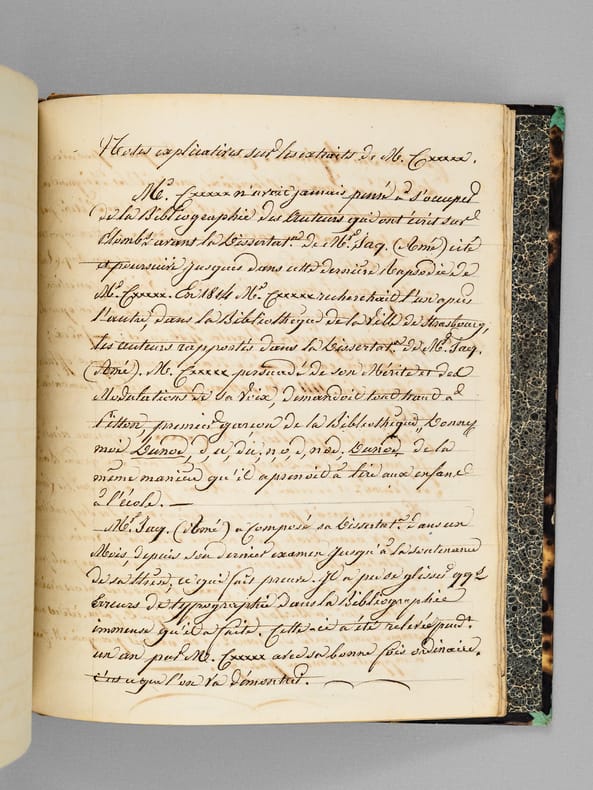 Notes explicatives sur les extraits de M. Cxxxxx.
Mr. Cxxxxx n'avoit jamais pensé à s'occuper
de la Bibliographie des Auteurs qui ont écrit sur
Plombs. avant la Dissertatn. de Mr. Jaq. (Amé) cité
et poursuivi jusques dans cette dernière Rapsodie de
Mr. Cxxxxx. En 1814 Mr. Cxxxxx recherchait l'un après
l'autre, dans la Bibliothèque de la Ville de Strasbourg,
les auteurs rapportés dans la Dissertatn. de Mr. Jaq.
(Amé). M. Cxxxxx persuadé de son Mérite et des
Modulations de sa Voix, demandoit tout haut à
premier garçon de la Bibliothèque,, Donnez
moi Dunod, d, u, du, n, o, d, nod. Dunod de la
même manière qu'il apprenoit à lire aux enfans
à l'école. —
Mr. Jaq. (Amé) a composé sa Dissertatn. dans un
Mois, depuis son dernier examen jusqu'à la soutenance
de sa thèse, ce qui fait preuve. Il a pu se glisser qqs
Erreurs de typographie dans la Bibliographie
immense qu'il a faite. Cette ci a été relevée pendt.
un an par M. Cxxxxx avec sa bonne fois ordinaire.
c'est ce que l'on va démontrer.